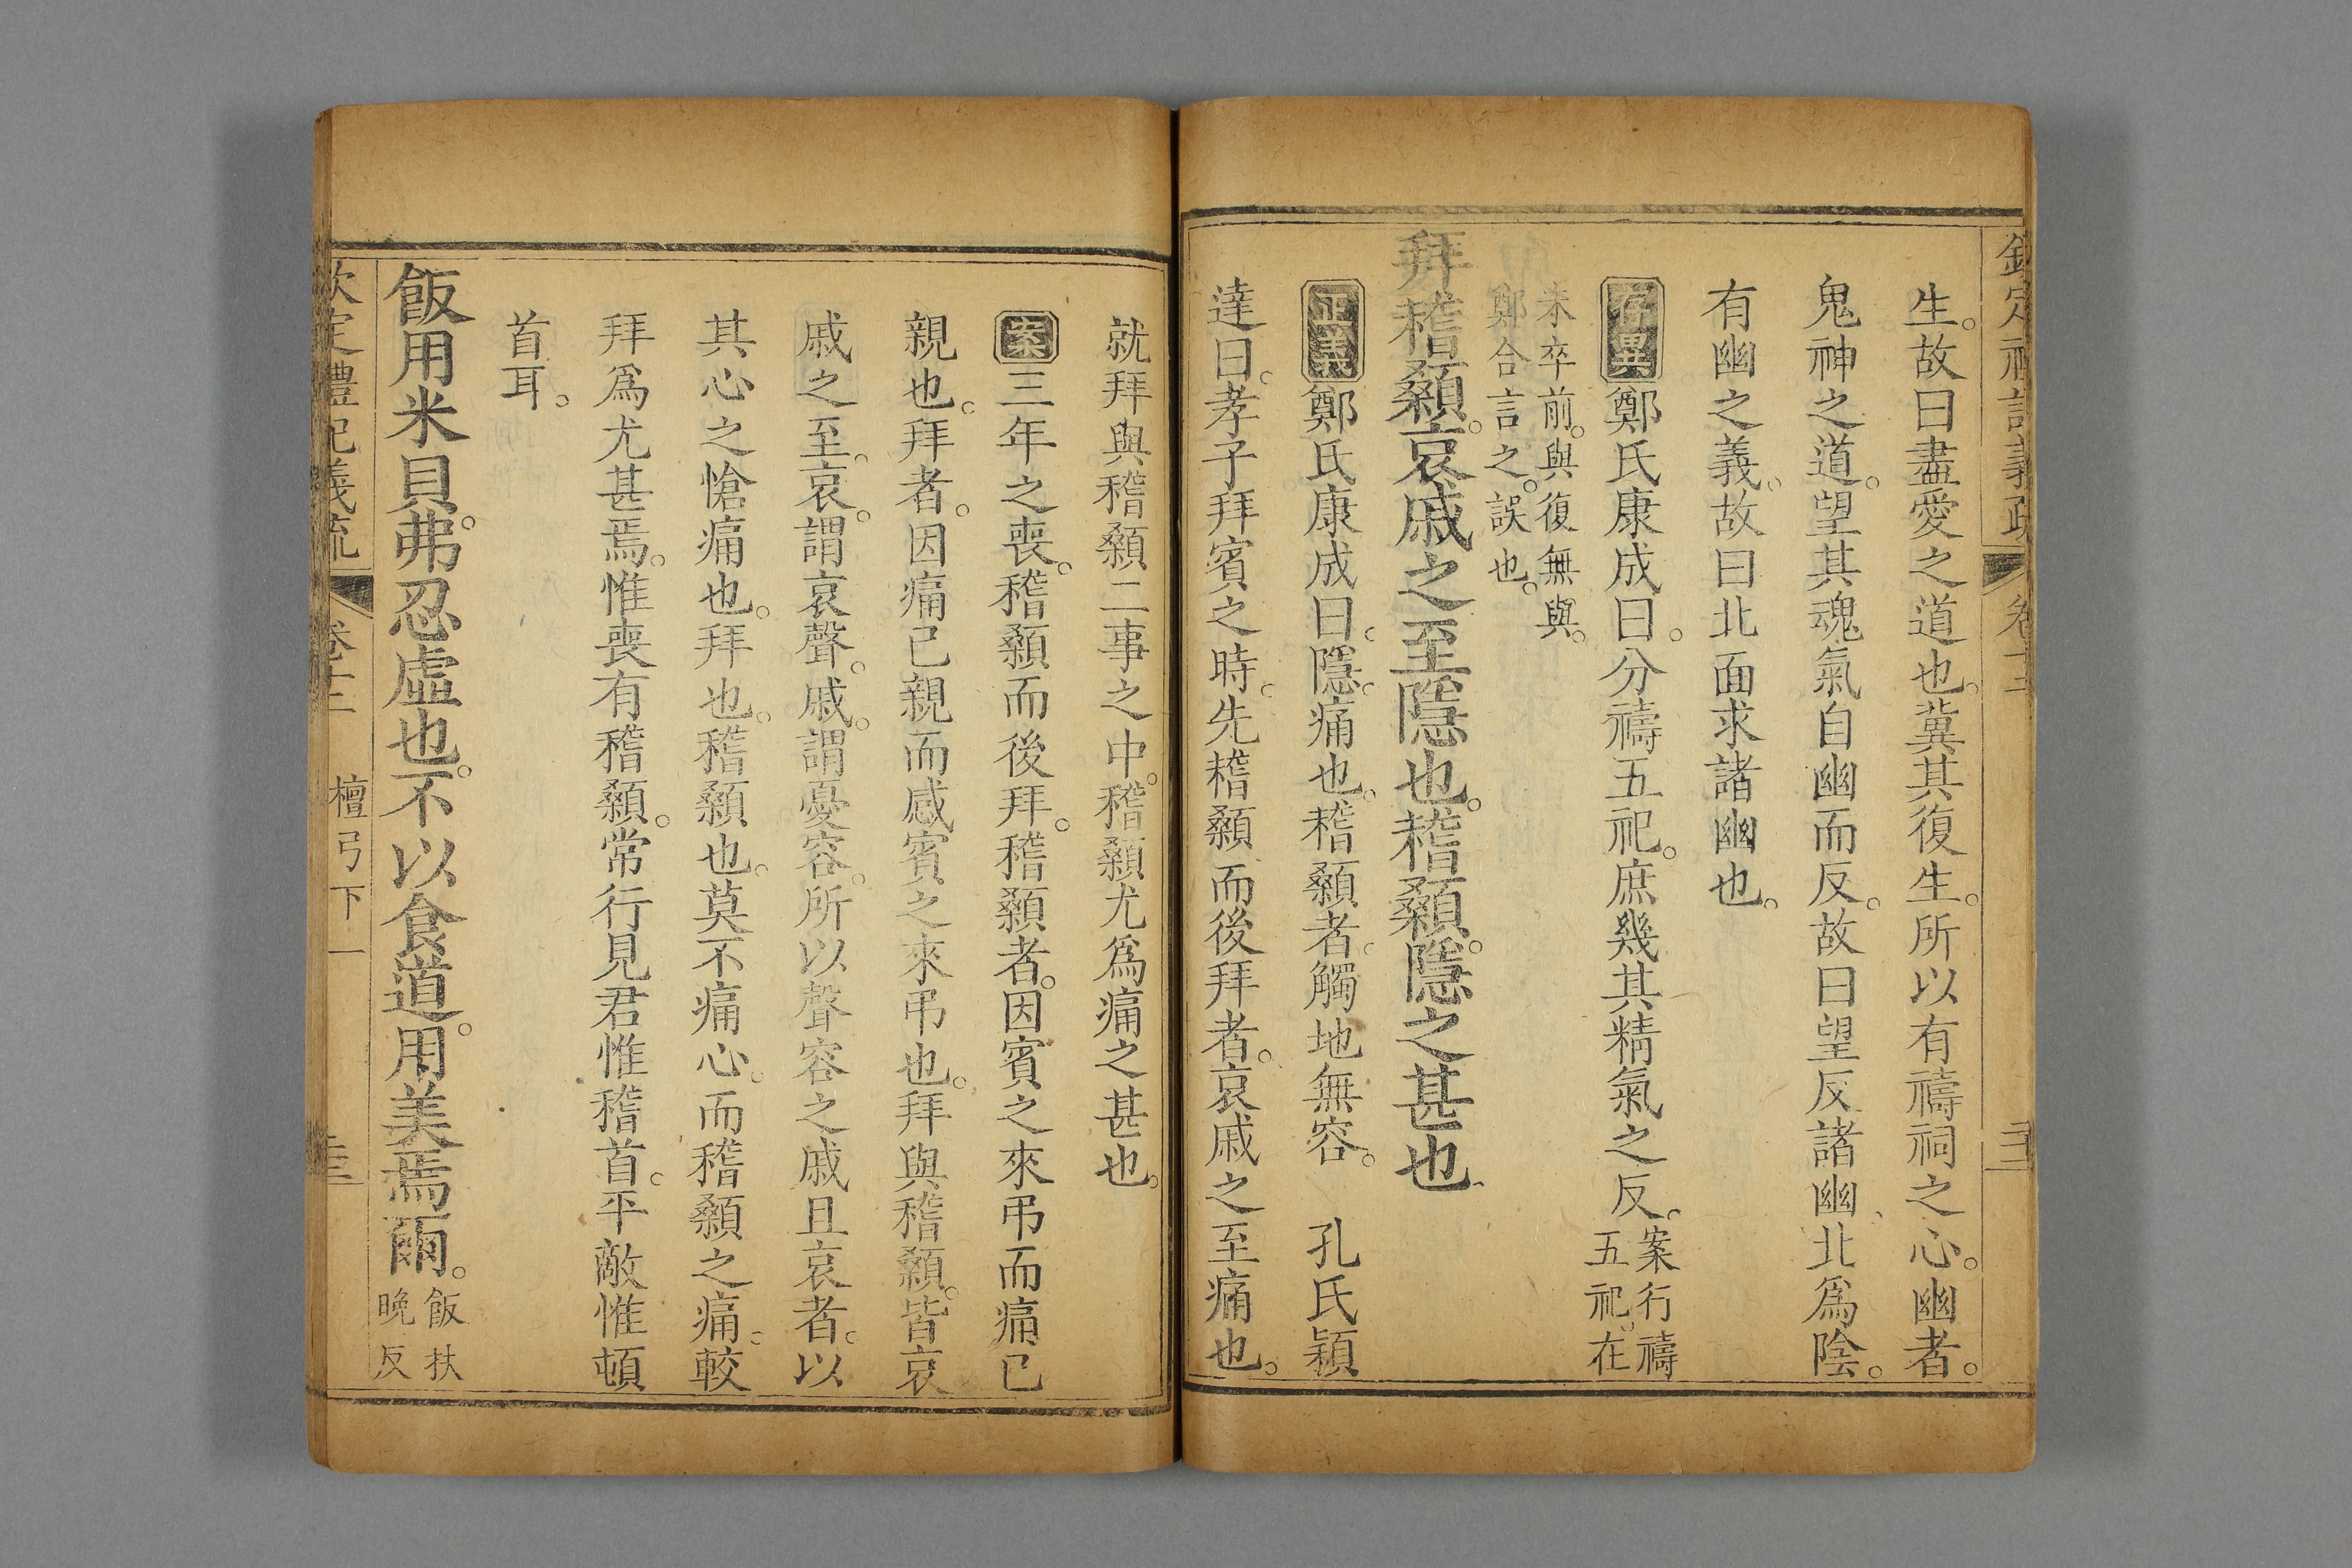 生。故曰盡愛之道也。冀其復生。所以有禱祠之心。幽者。
鬼神之道。望其魂氣自幽而反。故曰望反諸幽、北爲陰。
有幽之義。故曰北面求諸幽也。
存異鄭氏康成曰。分禱五祀。庶幾其精氣之反。案行禱
五祀。在
未卒前。與復無與。
鄭合言之。誤也。
拜稽顙。哀戚之至隱也。稽顙。隱之甚也。
正義鄭氏康成曰。隱。痛也。稽顙者。觸地無容。 孔氏穎
達曰。孝子拜賓之時。先稽顙而後拜者。哀戚之至痛也。
就拜與稽顙二事之中。稽顙尤爲痛之甚也。
案三年之喪。稽顙而後拜。稽顙者。因賓之來弔而痛已
親也。拜者。因痛已親而感賓之來弔也。拜與稽顙。皆哀
戚之至。哀。謂哀聲。戚。謂憂容。所以聲容之戚且哀者。以
其心之愴痛也。拜也。稽顙也。莫不痛心。而稽顙之痛。較
拜爲尤甚焉。惟喪有稽顙。常行見君惟稽首。平敵惟頓
首耳。
飯用米貝。弗忍虛也。不以食道。用美焉爾。飯扶
晚反
欽定禮記義疏 卷十二 檀弓下一